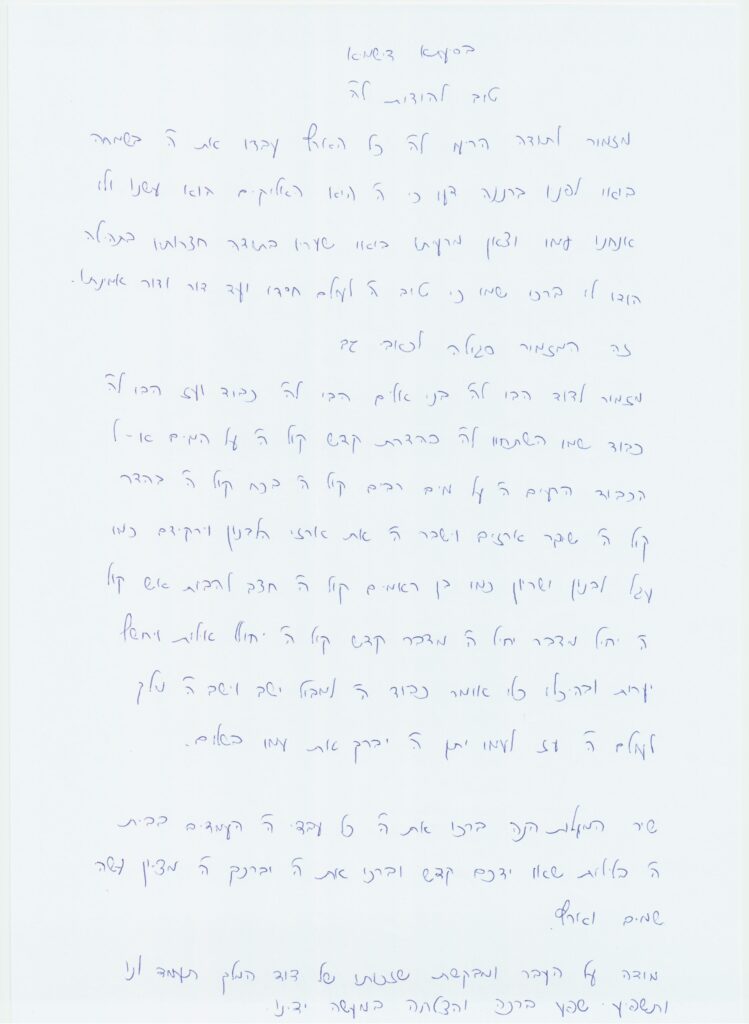 בסיעתא דישמיא
טוב להודות לה'
מזמור לתודה הריעו לה' כל הארץ עבדו את ה' בשמחה
בואו לפניו ברננה דעו כי ה' הוא האליקים הוא עשנו ולו
אנחנו עמו וצאן מרעיתו בואו שעריו בתודה חצרותיו בתהילה
הודו לו ברכו שמו כי טוב ה' לעולם חסדו ועד דור ודור אמונתו.
זה המזמור סגולה לכאבי גב
מזמור לדוד הבו לה' בני אלים הבו לה' כבוד ועז הבו לה'
כבוד שמו השתחוו לה' בהדרת קדש קול ה' על המים א-ל
הכבוד הרעים ה' על מים רבים קול ה' בכח קול ה' בהדר
קול ה' שבר ארזים וישבר ה' את ארזי הלבנון וירקידם כמו
עגל לבנון ושריון כמו בן ראמים קול ה' חצב להבות אש קול
ה' יחיל מדבר יחיל ה' מדבר קדש קול ה' יחולל אילות ויחשף
יערות ובהיכלו כלו אומר כבוד ה' למבול ישב וישב ה' מלך
לעולם ה' עז לעמו יתן ה' יברך את עמו בשלום.
שיר המעלות הנה ברכו את ה' כל עבדי ה' העמדים בבית
ה' בלילות שאו ידכם קדש וברכו את ה' יברכך ה' מציון עשה
שמים וארץ
מודה על העבר ומבקשת שזכותו של דוד המלך תעמוד לנו
ותשפיע שפע ברכה והצלחה במעשה ידינו